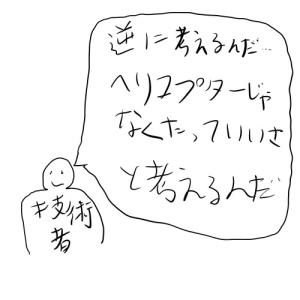 逆に考えるんだ…
ヘリコプターじゃ
なくたっていいさ
と考えるんだ
技術
者